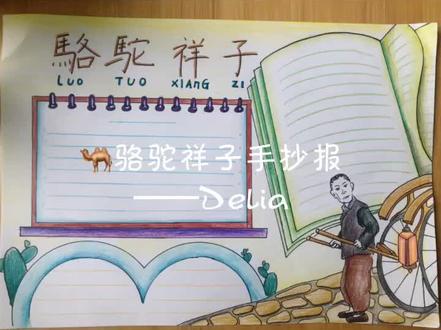 駱駝祥子
LUO TUO XIANG ZI
🐫骆驼祥子手抄报
——Delia